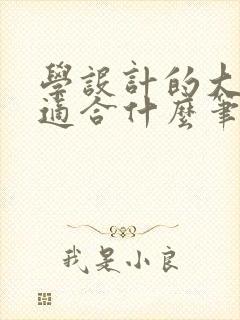 學設計的大
適合什麼筆
我是小良